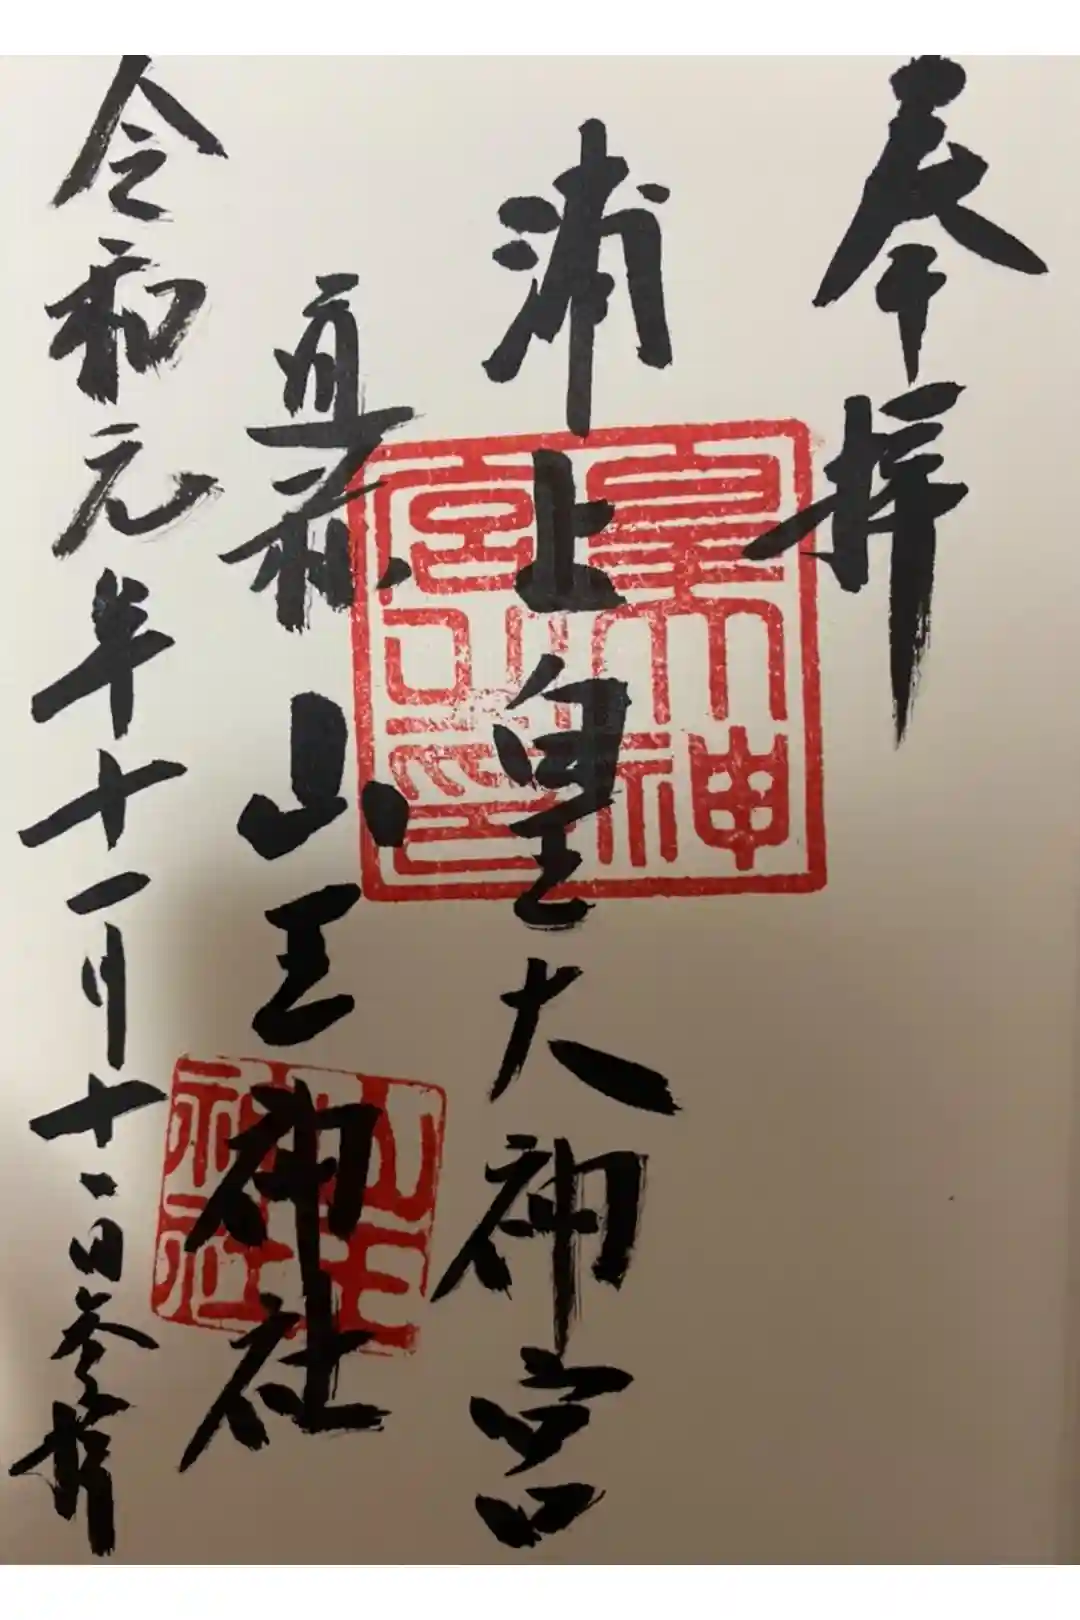 奉拝
浦上皇大神宮
山王神社
令和元年十一月十一日参拝
皇大神
山王
神社